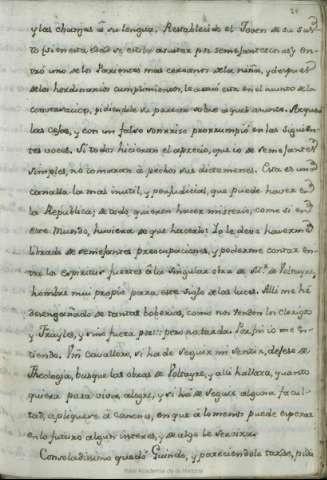 y las chanzas á su lengua. Restablecido el Joven de su sus
to (si en esta edad se cabe asustar por semejantes cosas) en
tró uno de los Parientes mas cercanos de la niña, y despues
de los hordinarios cumplimientos, le metió este en el punto de la
conversacion, pidiendole su parecer sobre aquel asunto. Arqueó
las cejas, y con un falso sonrrise prorrumpió en las siguien
tes voces. Si todos hicieran el aprecio, que io de semejantes
simples, no tomaran á pechos sus dictamenes. Esta es una
canalla la mas inutil, y perjudicial, que puede haver en
la Republica; de todo quieren hacer misterio, como si en
este Mundo, huviera de que hacerlo: Io le devo haverme
librado de semejantes preocupaciones, y poderme contar en
tre los espiritus fuertes á la singular obra de Mr. de Voltayre,
hombre mui propio para este siglo de las luces. Alli me hé
desengañado de tantas boberias, como nos venden los Clerigos
y Frayles, y si no fuera por::: pero no tarda. Por fin io me en
tiendo. Vm. Cavallero, si ha de seguir mi dictamen, dexese de
Theologia, busque las obras de Voltayre, y alli hallara, quanto
quiera para vivir alegre, y si há de seguir alguna facul
tad, apliquese á canones, en que á lo menos puede esperar
en lo futuro algun interes, y de algo le servirá.
Consoladisimo quedó Guindo, y pareciendole tarde, pidió
24
Real Academia de la Historia